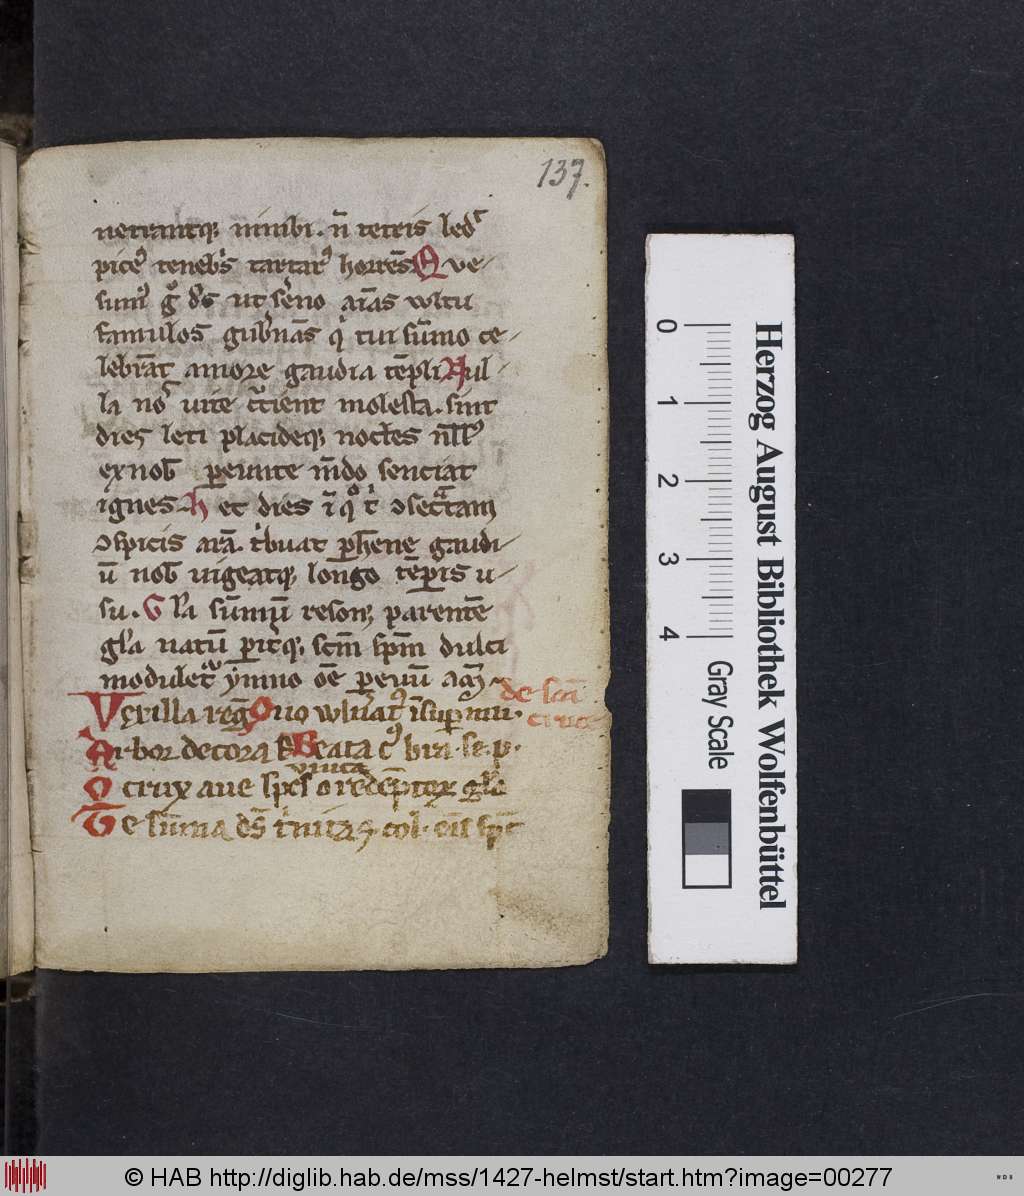 137.
uetantq; nimbi. n̄ tetris led᷑
picé tenebs tartar᷑ horrēs Que-
sum᷑ g̊ ds̄ ut sēno aīas wltu
famulos gub̄nās q' tui sūmo ce-
lebrāt amore gaudia tēpli Nul-
la no᷑ uite c̄cient molesta. sint
dies leti placideq; noctes nll᷑
ex nob̄ peunte mdo senciat
ignes h et dies ī q̊ t' ↄsec̄tam
ↄspicis arā. t'buat phēne gaudi-
ū nob̄ uigeatq; longo tēp̄is u-
su. Gl'a sūmū resonꝫ parentē
gl'a natū pitq; scm̄ sp̄m dulci
modulet᷑ ymno oē p euū am̄.
de sc̄a
cruce
Vexilla reg̃ Quo wln̄at᷑ īsup mu.
Arbor decora & Beata c᷑ bra. se. p.
O crux aue spes unica o redēptor gl'e
Te sūma ds̄ t'nitas col. om̄ sp̄c
0 1 2 3 4
Gray Scale
Herzog August Bibliothek Wolfenbüttel
© HAB http://diglib.hab.de/mss/1427-helmst/start.htm?image=00277